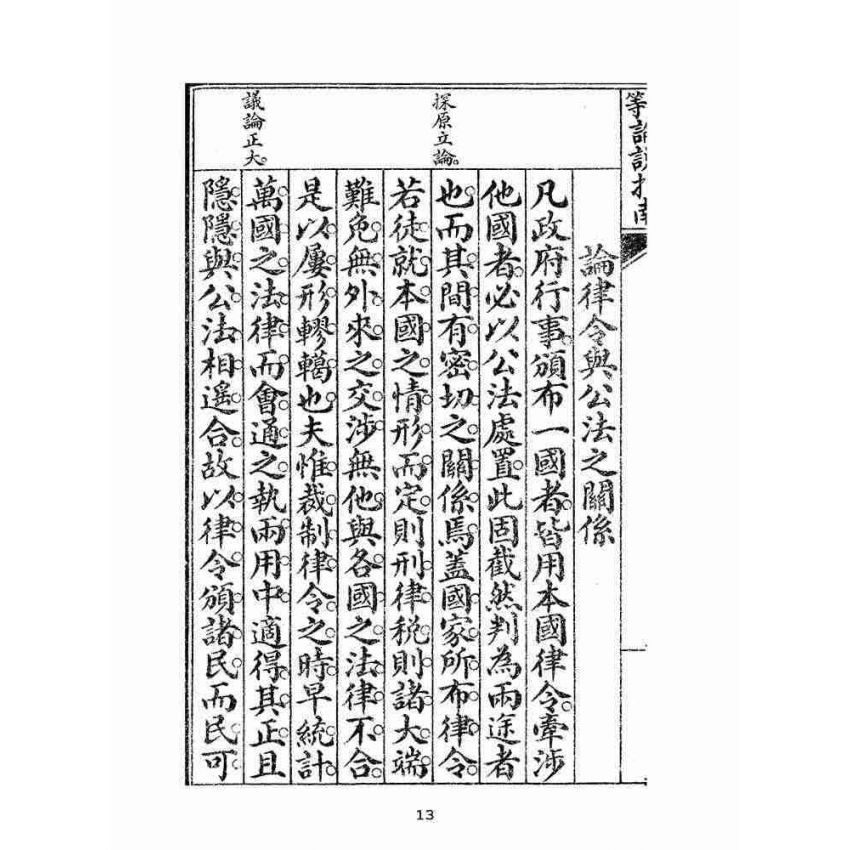 等論說指南
論律令與公法之關係
凡政府行事頒布一國者皆用本國律令牽涉
他國者必以公法處置此固截然判為兩途者
也而其間有密切之關係焉蓋國家所布律令
若徒就本國之情形而定則刑律稅則諸大端
難免無外來之交涉無他與各國之法律不合
是以屢形轇轕也夫惟裁制律令之時早統計
萬國之法律而會通之執兩用中適得其正且
隱隱與公法相遙合故以律令頒諸民而民可
探原立論
議論正大
13